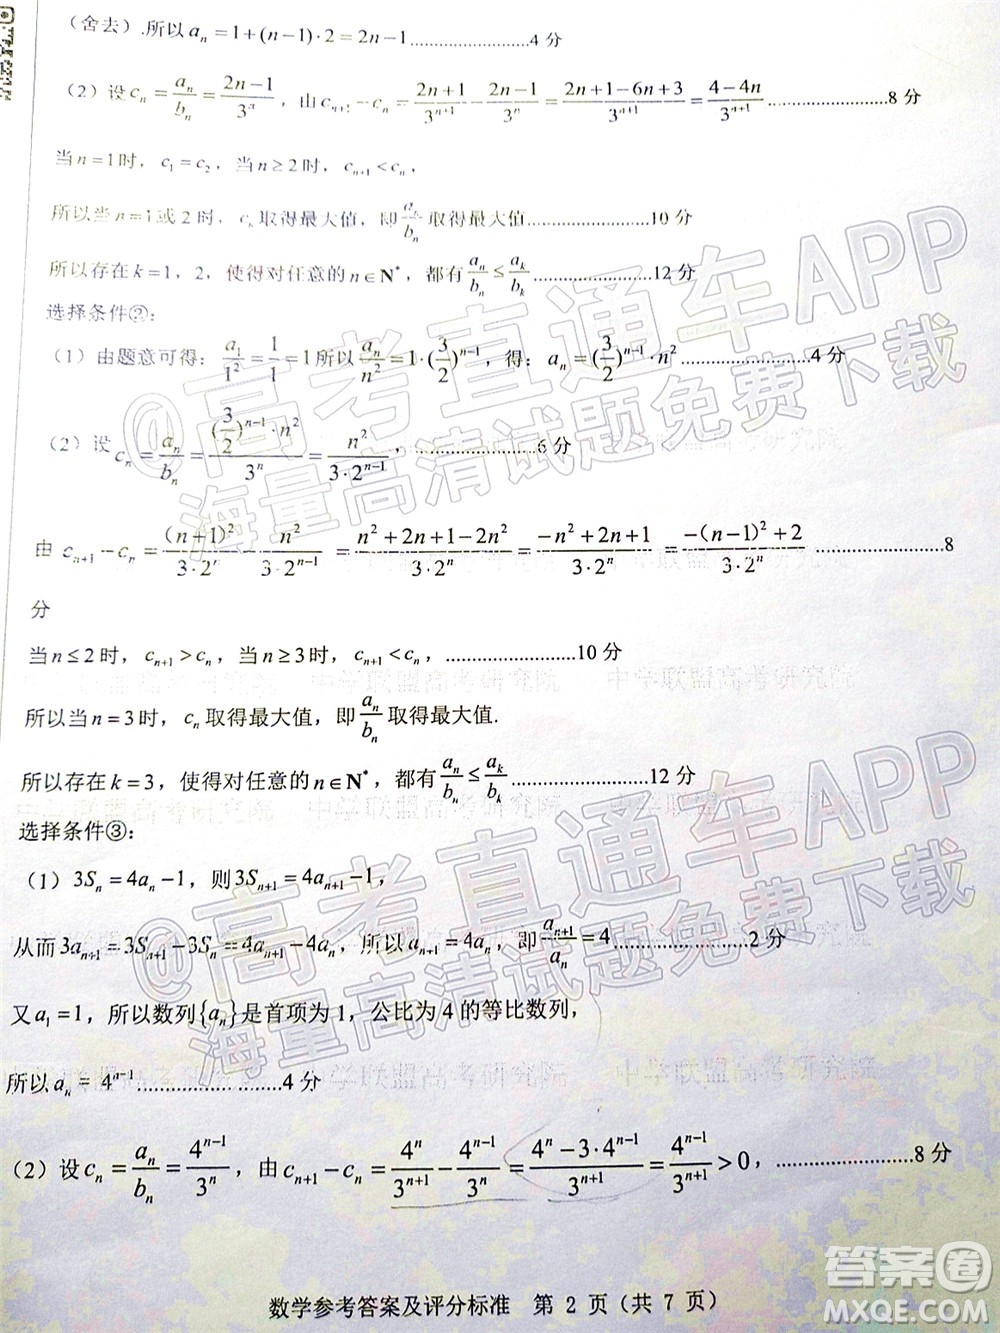 (舍去).所以 aₙ=1+(n−1)·2=2n−1....................4 分
(2) 设 cₙ = aₙ/bₙ = (2n−1)/3ⁿ ，由 cₙ₊₁−cₙ = (2n+1)/3ⁿ⁺¹ − (2n−1)/3ⁿ = (2n+1−6n+3)/3ⁿ⁺¹ = (4−4n)/3ⁿ⁺¹ ....................8 分
当 n=1 时， c₁=c₂，当 n≥2 时， cₙ₊₁<cₙ，
所以当 n=1 或 2 时， cₙ 取得最大值，即 aₙ/bₙ 取得最大值....................10 分
所以存在 k=1，2，使得对任意的 n∈N*，都有 aₙ/bₙ ≤ aₖ/bₖ ....................12 分
选择条件②：
(1) 由题意可得： a₁/1² = 1/1 = 1 所以 aₙ/n² = 1·(3/2)ⁿ⁻¹，得： aₙ=(3/2)ⁿ⁻¹·n² ....................4 分
(2) 设 cₙ = aₙ/bₙ = ((3/2)ⁿ⁻¹·n²)/3ⁿ = n²/(3·2ⁿ⁻¹)，....................6 分
由 cₙ₊₁−cₙ = (n+1)²/(3·2ⁿ) − n²/(3·2ⁿ⁻¹) = (n²+2n+1−2n²)/(3·2ⁿ) = (−n²+2n+1)/(3·2ⁿ) = (−(n−1)²+2)/(3·2ⁿ) ....................8
分
当 n≤2 时， cₙ₊₁>cₙ，当 n≥3 时， cₙ₊₁<cₙ，....................10 分
所以当 n=3 时， cₙ 取得最大值，即 aₙ/bₙ 取得最大值.
所以存在 k=3，使得对任意的 n∈N*，都有 aₙ/bₙ ≤ aₖ/bₖ ....................12 分
选择条件③：
(1) 3Sₙ=4aₙ−1，则 3Sₙ₊₁=4aₙ₊₁−1，
从而 3aₙ₊₁=3Sₙ₊₁−3Sₙ=4aₙ₊₁−4aₙ，所以 aₙ₊₁=4aₙ，即 aₙ₊₁/aₙ=4....................2 分
又 a₁=1，所以数列{aₙ}是首项为 1，公比为 4 的等比数列，
所以 aₙ=4ⁿ⁻¹....................4 分
(2) 设 cₙ = aₙ/bₙ = 4ⁿ⁻¹/3ⁿ，由 cₙ₊₁−cₙ = 4ⁿ/3ⁿ⁺¹ − 4ⁿ⁻¹/3ⁿ = (4ⁿ−3·4ⁿ⁻¹)/3ⁿ⁺¹ = 4ⁿ⁻¹/3ⁿ⁺¹ >0，....................8 分
数学参考答案及评分标准 第 2 页（共 7 页）
@高考直通车APP
海量高清试题免费下载
@高考直通车APP
海量高清试题免费下载
中学联盟高考研究院
答案圈
MXQE.COM